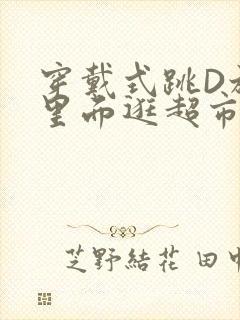 穿戴式跳D放
里而逛超市
芝野結花 田中